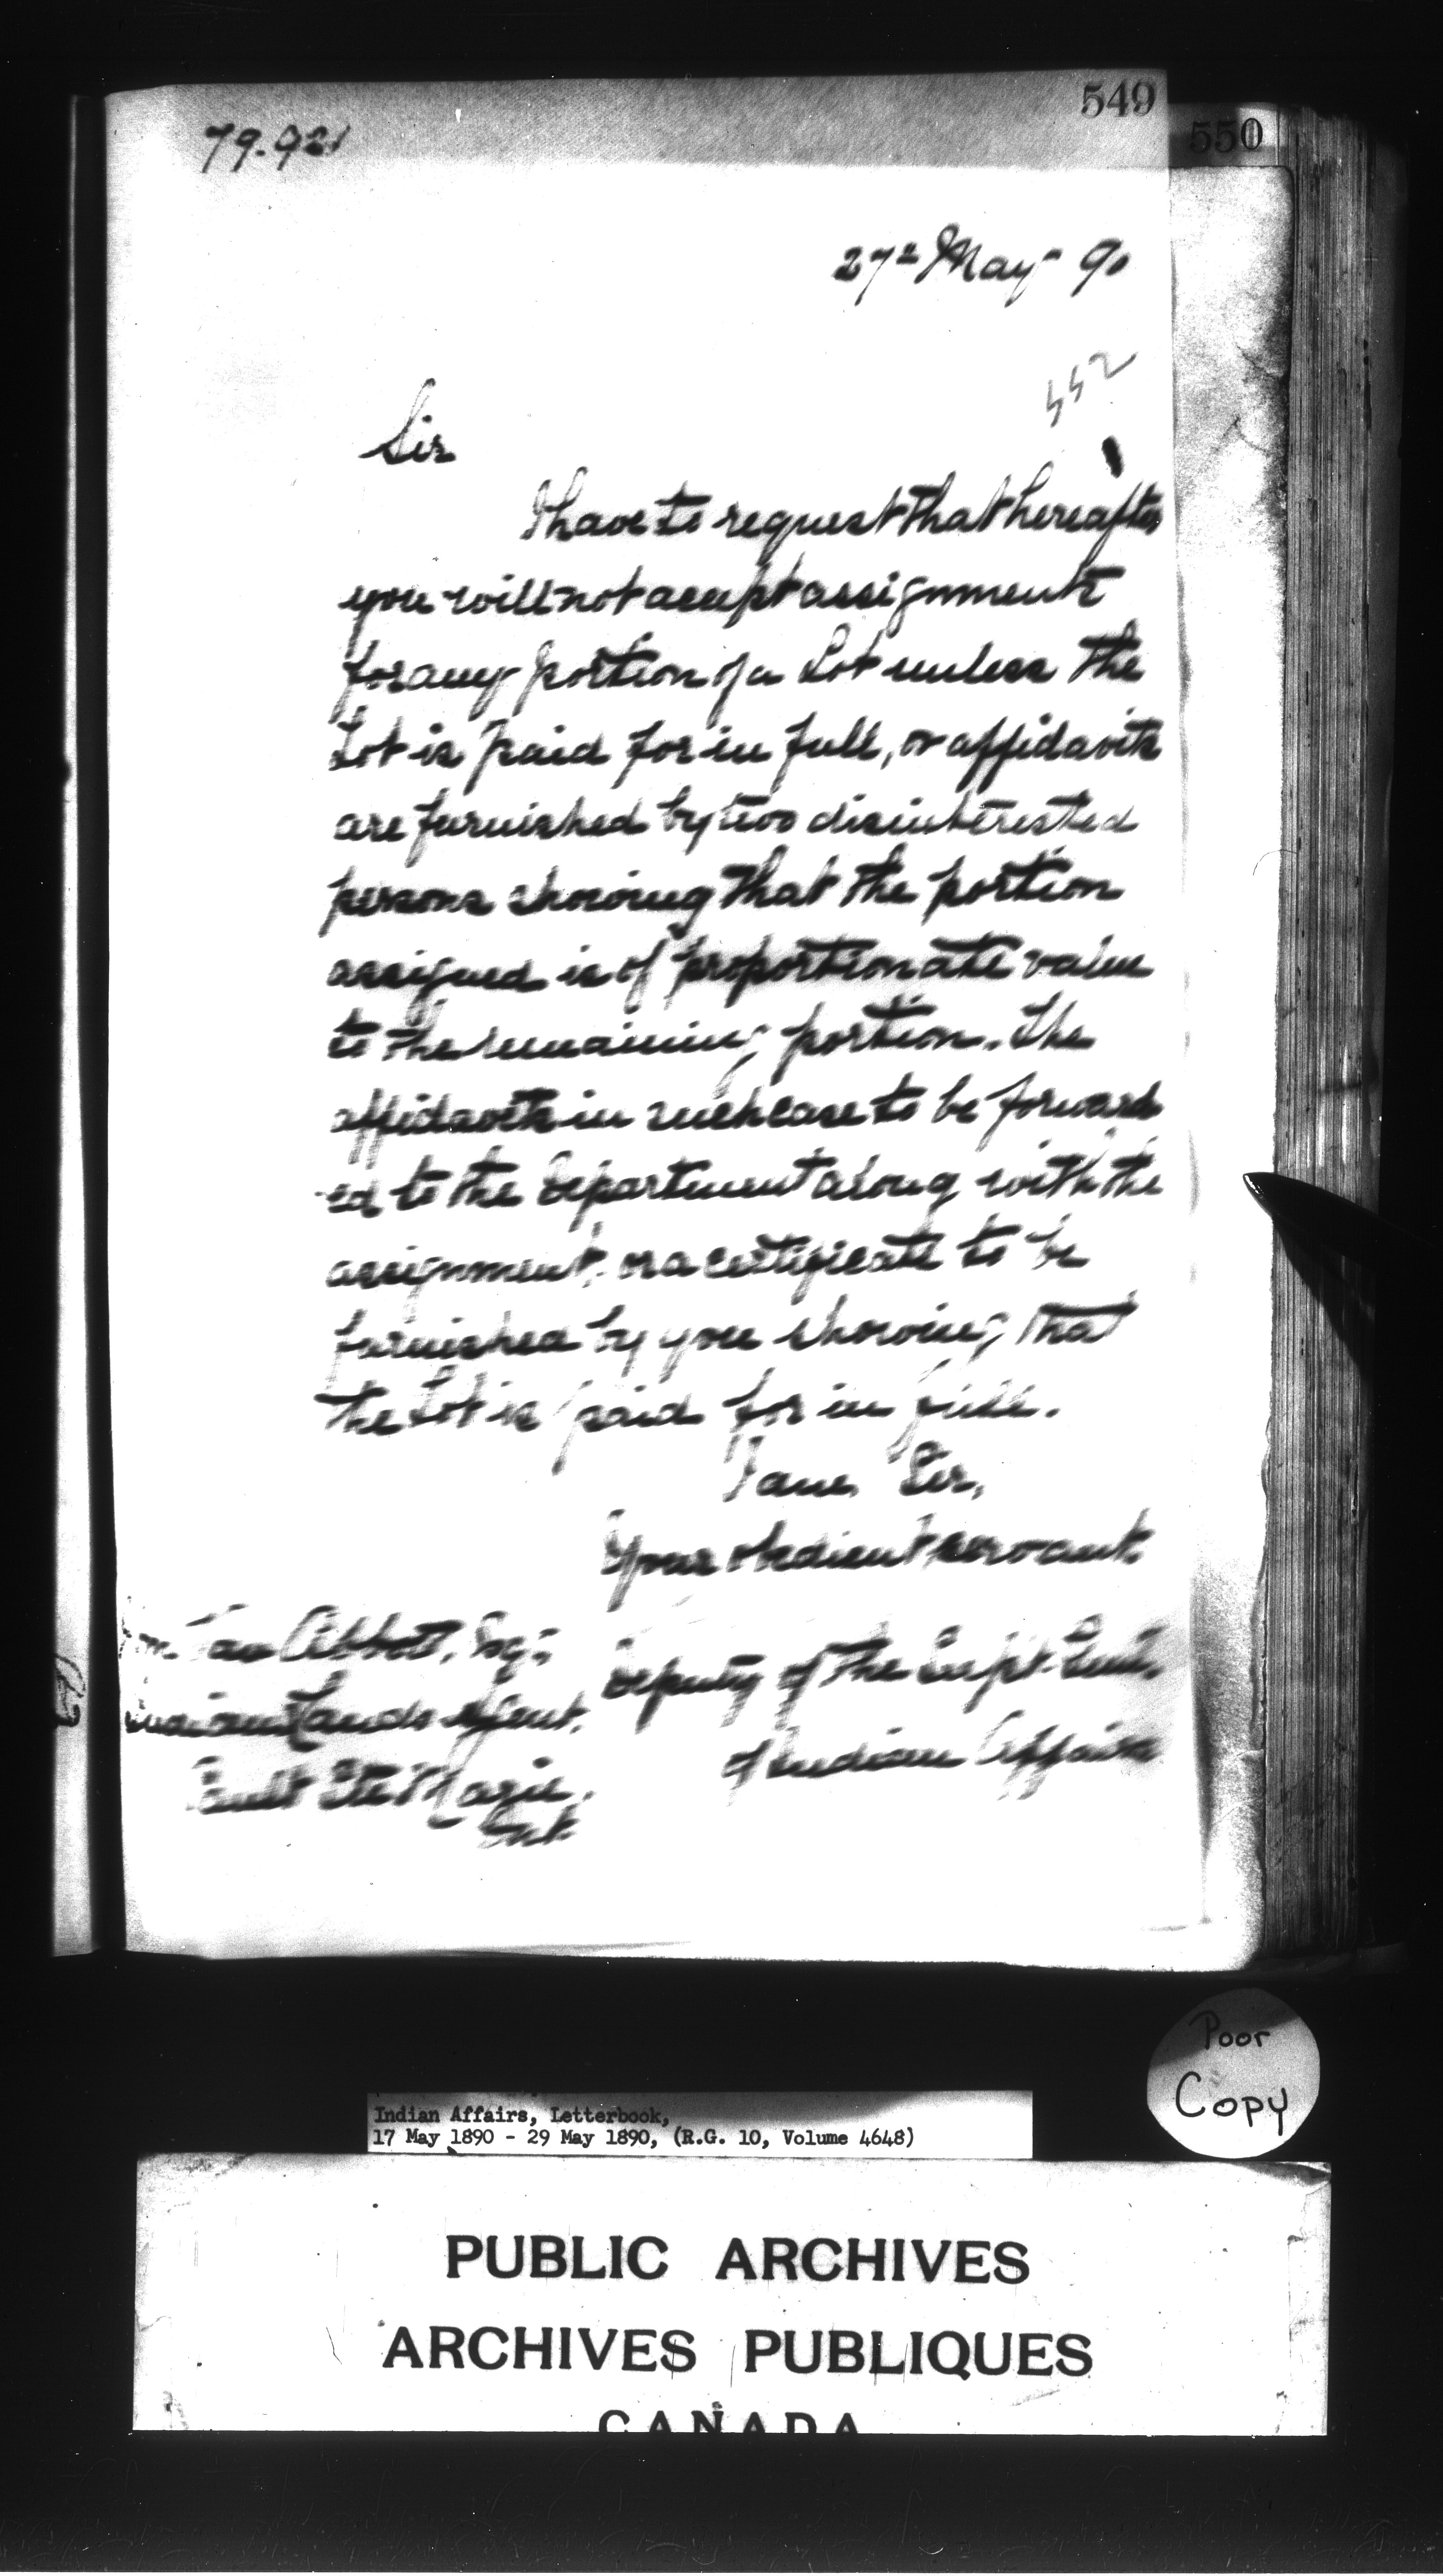 549
550
79.921
27th May 90
552
Sir
I have to request that hereafter
you will not accept assignments
for any portion of a Lot unless the
Lot is paid for in full, or affidavits
are furnished by two disinterested
persons showing that the portion
assigned is of proportionate value
to the remaining portion. The
affidavits in such case to be forward
ed to the Department along with the
assignment, or a certificate to be
furnished by you showing that
the Lot is paid for in full.
I am, Sir,
Your obedient servant.
Deputy of the Supt. Genl.
of Indian Affairs
Wm. Van Abbott, Esq.,
Indian Lands Agent,
Sault Ste Marie,
Ont.
Poor
Copy
Indian Affairs, Letterbook,
17 May 1890 - 29 May 1890, (R.G. 10, Volume 4648)
PUBLIC ARCHIVES
ARCHIVES PUBLIQUES
CANADA